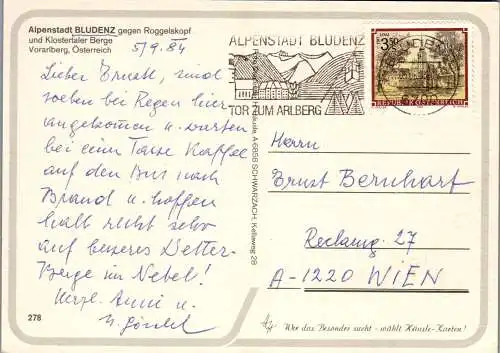 Alpenstadt BLUDENZ gegen Roggelskopf
und Klostertaler Berge
Vorarlberg, Österreich
5/9.84
Lieber Ernstl, sind
soeben bei Regen hier
angekommen u. warten
bei einer Tasse Kaffee
auf den Bus nach
Brand u. hoffen
halt recht sehr
auf besseres Wetter-
Berge im Nebel!
Herzl. Anni u.
278
ALPENSTADT BLUDENZ
TOR ZUM ARLBERG
REPUBLIK ÖSTERREICH
A-6858 SCHWARZACH, Kellaweg 29
Herrn
Ernst Bernhart
Reclamg. 27
A-1220 WIEN
Wer das Besondere sucht - wählt Hänsle-Karten!